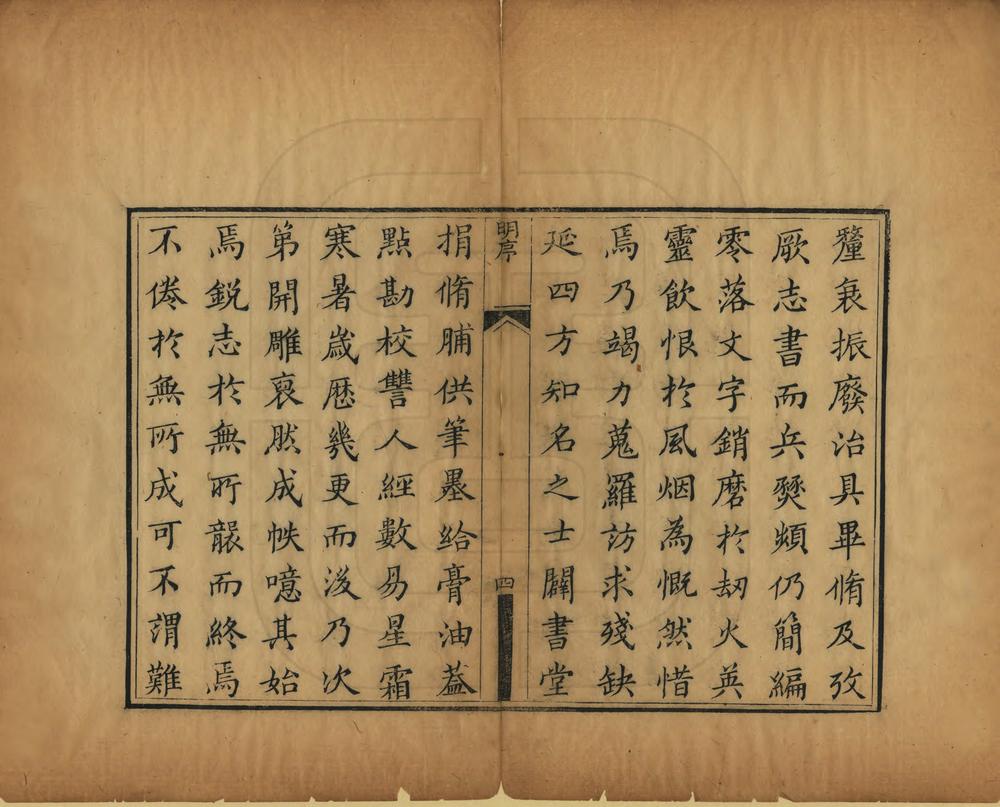 釐衰振廢治具畢脩及攷
厥志書而兵燹頻仍簡編
零落文字銷磨於劫火英
靈飲恨於風烟為慨然惜
焉乃竭力蒐羅訪求殘缺
延四方知名之士闢書堂
明序
四
捐脩脯供筆墨給膏油葢
點勘校讐人經數易星霜
寒暑嵗歴幾更而後乃次
第開雕裒然成帙噫其始
焉銳志於無所襲而終焉
不倦於無所成可不謂難